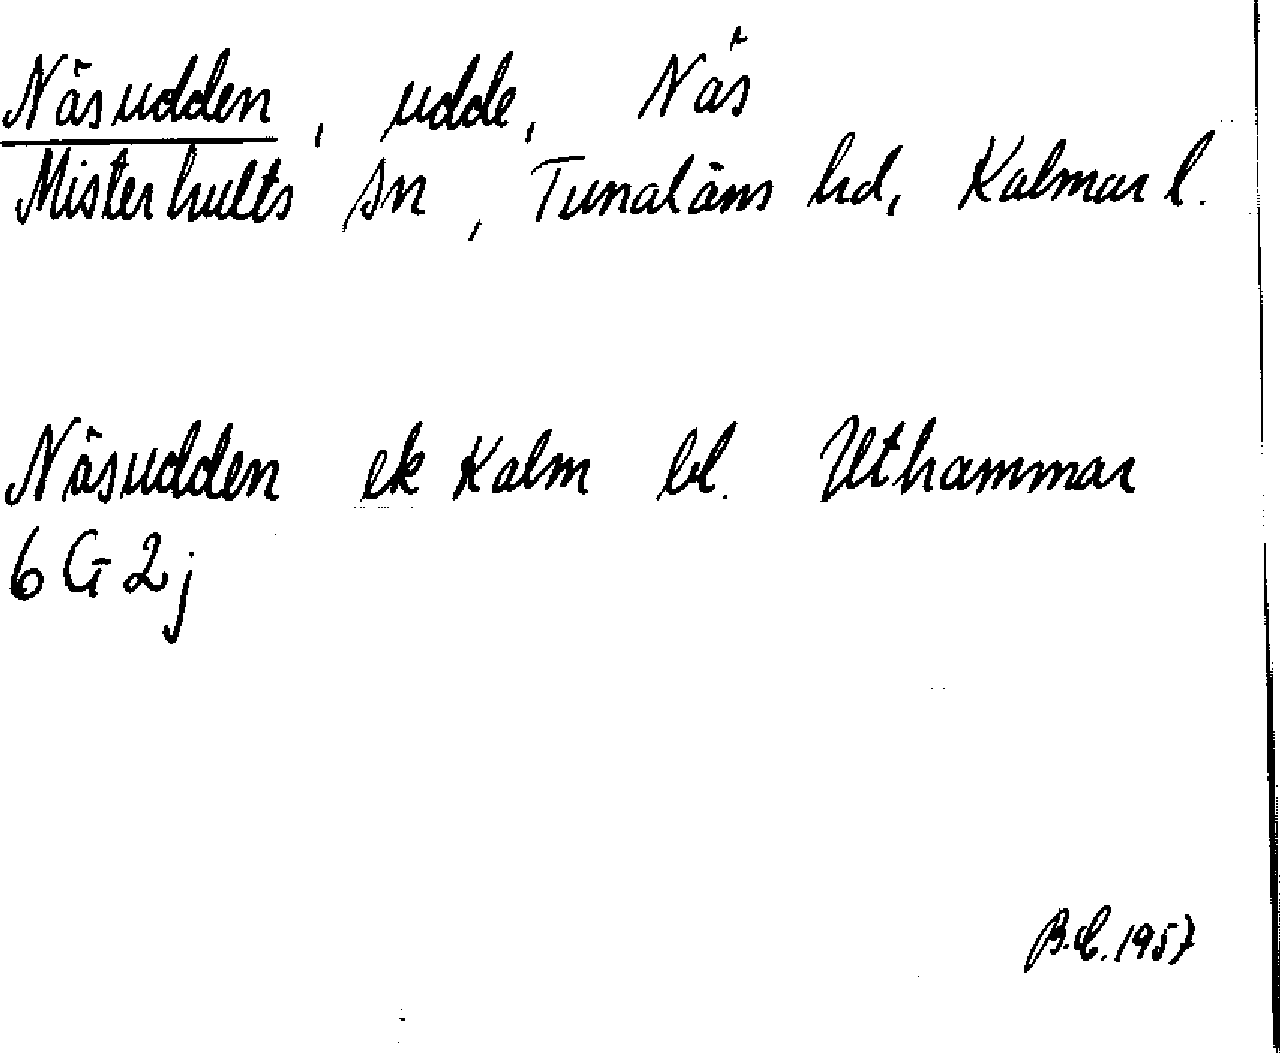 Näsudden, udde, Näs
Misterhults sn, Tunaläns hd, Kalmar l.
Näsudden ek Kalm bl. Uthammar
6 G 2 j
B.E. 1957